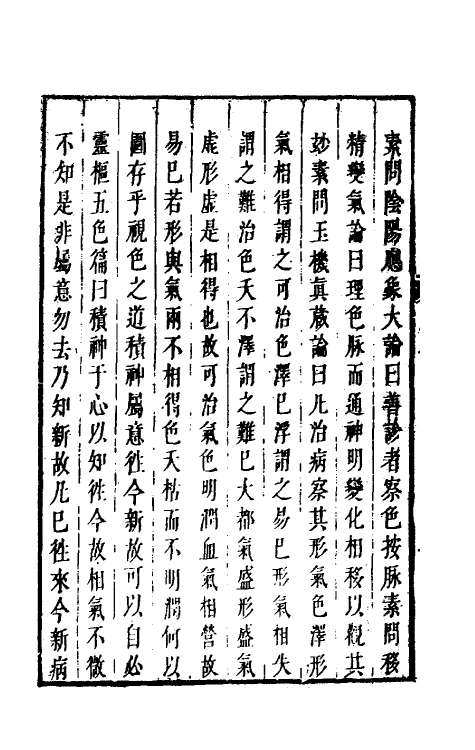 素問陰陽應象大論曰善診者察色按脉素問移
精變氣論曰理色脉而通神明變化相移以觀其
妙素問玉機真蔵論曰凡治病察其形氣色澤形
氣相得謂之可治色澤巳浮謂之易巳形氣相失
謂之難治色夭不澤謂之難巳大都氣盛形盛氣
虗形虗是相得也故可治氣色明潤血氣相營故
易巳若形與氣兩不相得色夭枯而不明潤何以
圖存乎視色之道積神屬意徃今新故可以自必
靈樞五色篇曰積神于心以知徃今故相氣不微
不知是非屬意勿去乃知新故凡巳徃來今新病